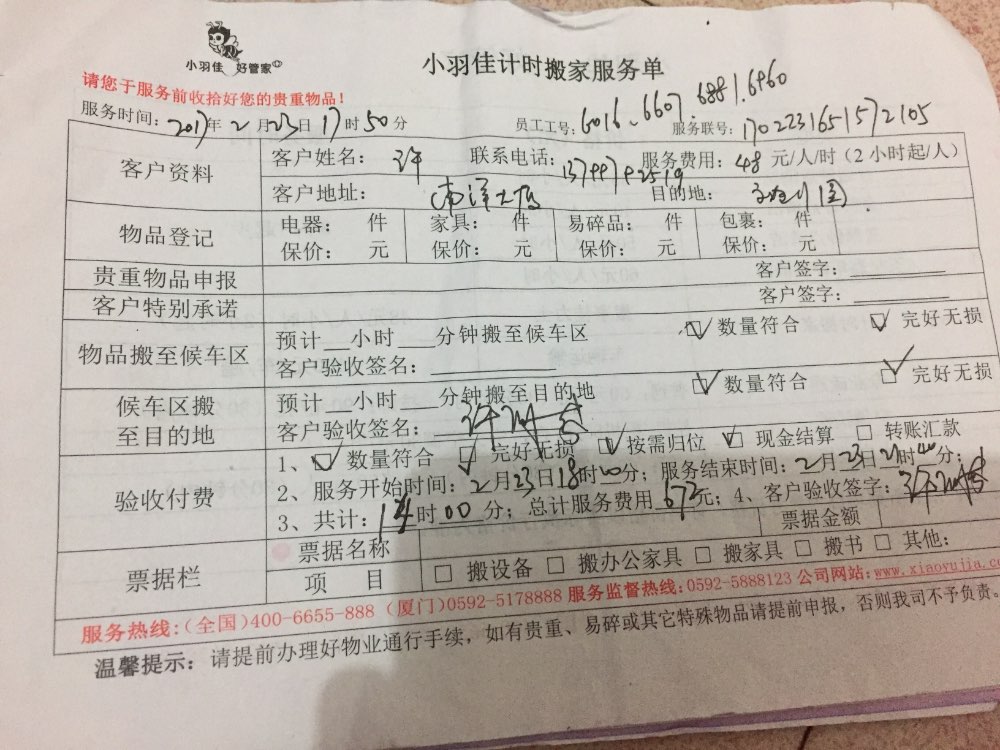 小羽佳 好管家
小羽佳计时搬家服务单
请您于服务前收拾好您的贵重物品！
服务时间：2017年2月23日17时50分 员工工号：6016、6607、6881、6960 服务联号：1702231651572105
客户资料 客户姓名：许 联系电话： 服务费用：48元/人/时（2小时起/人）
客户地址：南洋大厦 目的地：
物品登记 电器： 件 家具： 件 易碎品： 件 包裹： 件
保价： 元 保价： 元 保价： 元 保价： 元
贵重物品申报 客户签字：
客户特别承诺 客户签字：
物品搬至候车区 预计__小时___分钟搬至候车区 ☑数量符合 ☑完好无损
客户验收签名：
候车区搬至目的地 预计__小时___分钟搬至目的地 ☑数量符合 ☑完好无损
客户验收签名：许
验收付费 1、☑数量符合 ☑完好无损 ☑按需归位 ☑现金结算 □转账汇款
2、服务开始时间：2月23日18时00分；服务结束时间：2月23日21时分；
3、共计：14时00分；总计服务费用672元；4、客户验收签字：许
票据栏 票据名称 票据金额
项 目 □搬设备 □搬办公家具 □搬家具 □搬书 □其他：
服务热线：（全国）400-6655-888（厦门）0592-5178888 服务监督热线：0592-5888123 公司网站：www.xiaoyujia.co
温馨提示：请提前办理好物业通行手续，如有贵重、易碎或其它特殊物品请提前申报，否则我司不予负责。